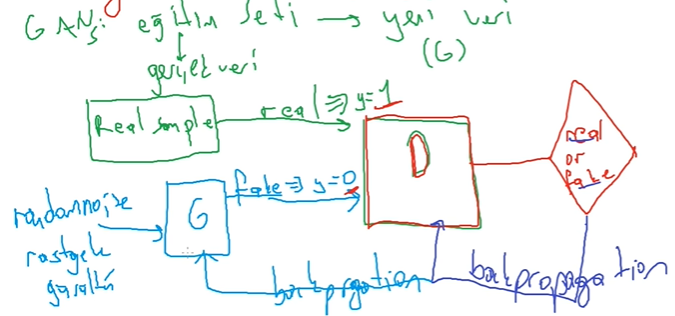 GANs: eğitim seti → yeni veri
(G)
gerçek veri
Real sample
real ⇒ y=1
D
real
or
fake
fake ⇒ y=0
G
random noise
rastgele
gürültü
backprgation
backpropagation